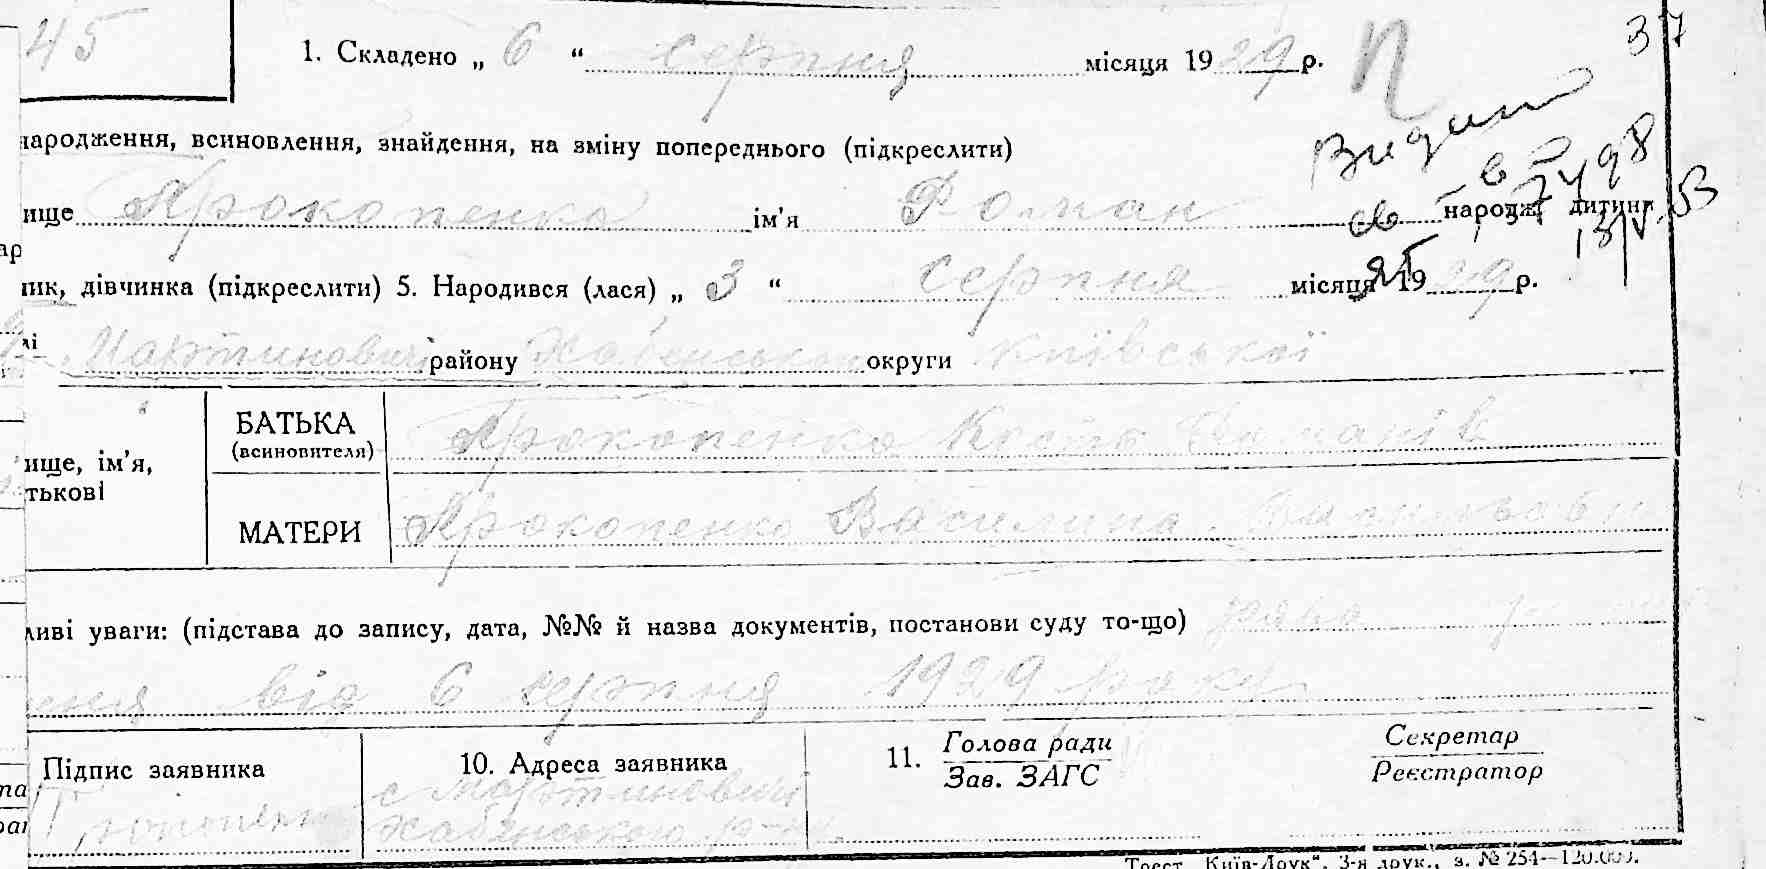 45
37
1. Складено „ 6 “ серпня місяця 1929 р.
п
Видан
народження, всиновлення, знайдення, на зміну попереднього (підкреслити)
ище Прокопенко ім’я Роман народж. дитини
ар
пик, дівчинка (підкреслити) 5. Народився (лася) „ 3 “ серпня місяця 1929 р.
лі Мартиновичі району Хабенськ округи Київської
БАТЬКА
(всиновителя)
Прокопенко Кость Романів
ище, ім’я,
тькові
МАТЕРИ Прокопенко Василина
ливі уваги: (підстава до запису, дата, №№ й назва документів, постанови суду то-що) заява
ення від 6 серпня 1929 року
Підпис заявника
10. Адреса заявника
с Мартиновичі
Хабенського р-ну
11. Голова ради
Зав. ЗАГС
Секретар
Реєстратор
Трест „Київ-Друк“, 3-я друк., з. № 254—120.000.